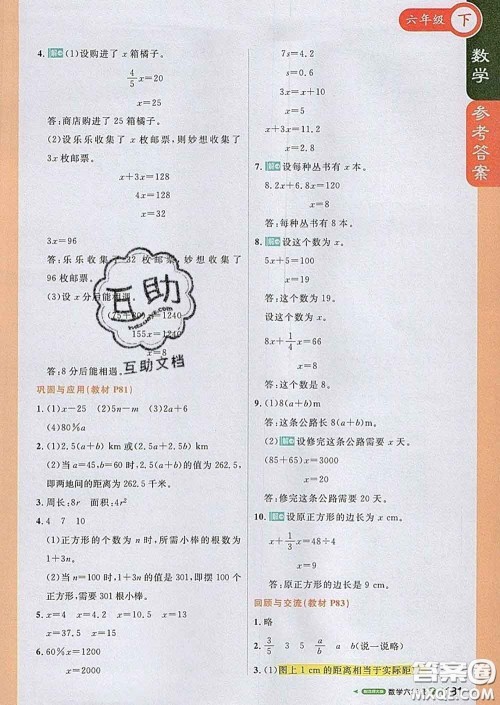 六年级 下
数学
参考答案
4. 解 (1)设购进了 x 箱橘子。
4/5 x=20
x=25
答:商店购进了 25 箱橘子。
(2)设乐乐收集了 x 枚邮票,则妙想收集了
3x 枚邮票。
x+3x=128
4x=128
x=32
3x=96
答:乐乐收集了 32 枚邮票,妙想收集了
96 枚邮票。
(3)设 x 分后能相遇。
(75+80)x=1240
155x=1240
x=8
答:8 分后能相遇。
巩固与应用(教材 P81)
1. (1)x-25 (2)5n-m (3)2a+6
(4)80%a
2. (1)2.5(a+b) km或(2.5a+2.5b) km
(2)当 a=45,b=60 时,2.5(a+b)的值为 262.5,
即两地间的距离为 262.5 千米。
3. 周长:8r 面积:4r²
4. 4 7 10
(1)正方形的个数为 n 时,所需小棒的根数为
1+3n。
(2)当 n=100 时,1+3n的值是 301,即摆 100 个
正方形,需要 301 根小棒。
5. x=4 x=0.4 x=12
x=37.5 x=15
6. x=2000
x=2000
7s=4.2
s=0.6
3x+x=11.2
x=2.8
7. 解 设每种丛书有 x 本。
8.2x+6.8x=120
x=8
答:每种丛书有 8 本。
8. 解 设这个数为 x。
5x+5=100
x=19
答:这个数为 19。
8x+1/4 x=33
x=4
答:这个数为 4。
9. (1)8(a+b)m
(2) 解 设修完这条公路需要 x 天。
(85+65)x=3000
x=20
答:修完这条公路需要 20 天。
10. 解 设原正方形的边长为 x cm。
x+1/3 x=48÷4
x=9
答:原正方形的边长是 9 cm。
回顾与交流(教材 P83)
1. 略
2. 3/5 3 5 a/b a b (说一说略)
3. (1)图上 1 cm 的距离相当于实际距
互助
互助文档
答案圈
数学六
31